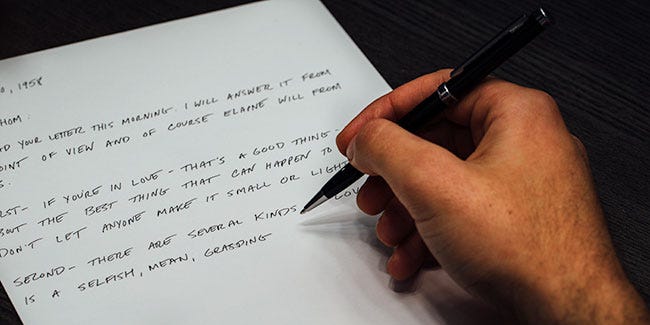 , 1958
HOM:
AD YOUR LETTER THIS MORNING. I WILL ANSWER IT FROM
OINT OF VIEW AND OF COURSE ELAINE WILL FROM
S.
RST- IF YOU'RE IN LOVE - THAT'S A GOOD THING -
BOUT THE BEST THING THAT CAN HAPPEN TO
DON'T LET ANYONE MAKE IT SMALL OR LIGHT
SECOND- THERE ARE SEVERAL KINDS LOV
IS A SELFISH, MEAN, GRASPING